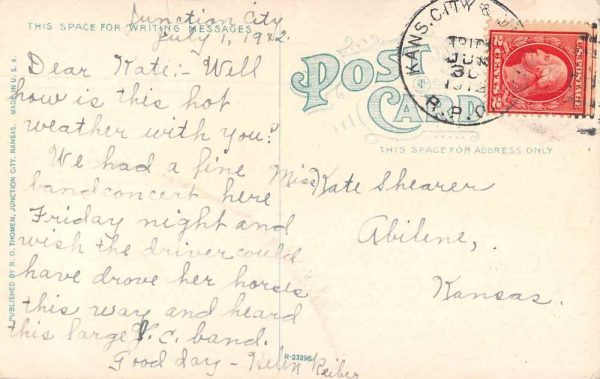 Junction City
July 1, 1912.
THIS SPACE FOR WRITING MESSAGES
Dear Kate:- Well
how is this hot
weather with you?
We had a fine
bandconcert here
Friday night and
wish the driver could
have drove her horses
this way and heard
this large J.C. band.
Good day - Helen Reiber
PUBLISHED BY R. O. THOMEN, JUNCTION CITY, KANSAS. MADE IN U.S.A.
POST
CARD
THIS SPACE FOR ADDRESS ONLY
Miss Kate Shearer
Abilene,
Kansas.
KANS. CITY &
JUN
30
1912
R.P.O.
U.S. POSTAGE
2 CENTS 2
R-23396